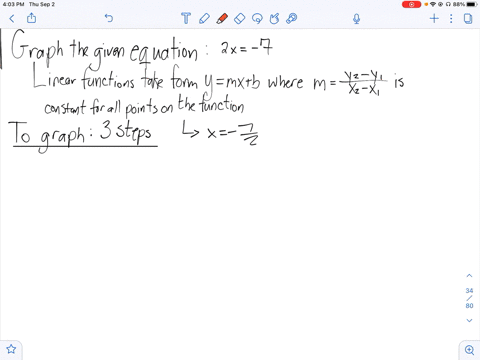 4:03 PM Thu Sep 2
88%
Graph the given equation: 2x = -7
Linear functions take form y = mx + b where m = (y₂ - y₁)/(x₂ - x₁) is
constant for all points on the function
To graph: 3 steps ↳ x = -7/2
34
/
80